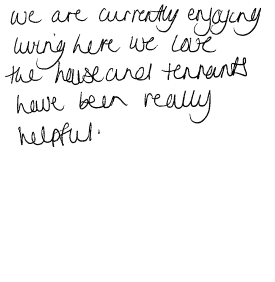 we are currently enjoying
living here we love
the house and tennants
have been really
helpful.